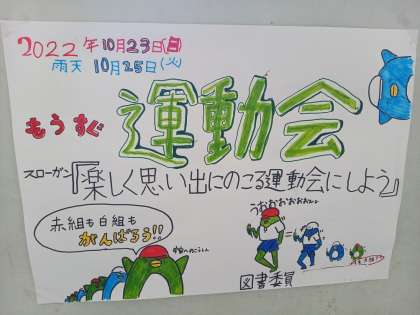 2022年10月23日(日)
雨天 10月25日(火)
もうすぐ
運動会
スローガン『楽しく思い出にのこる運動会にしよう』
赤組も白組も
がんばろう!!
うおおおおおおお
図書委員